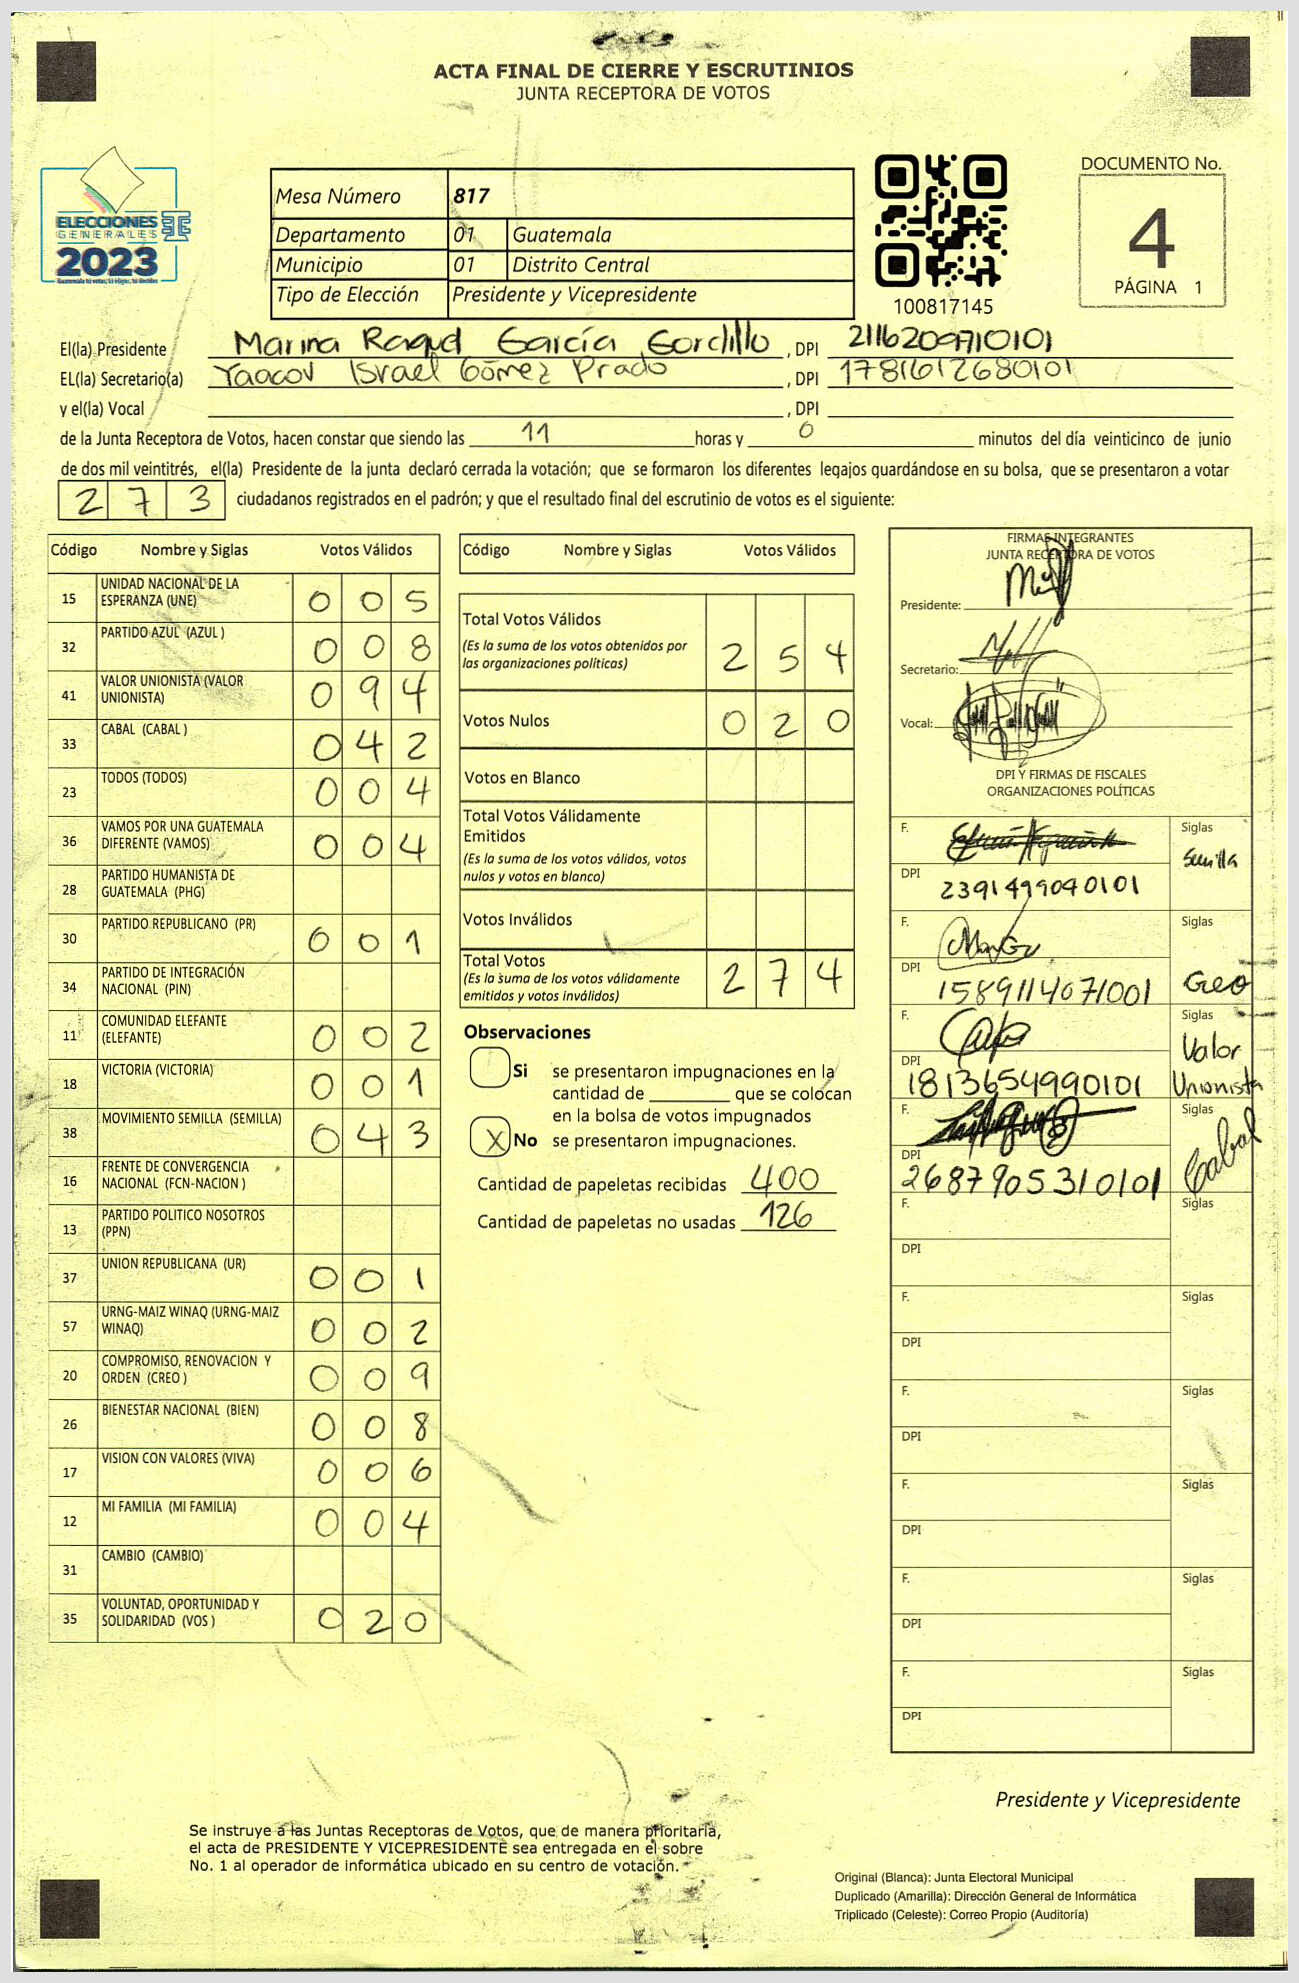 ACTA FINAL DE CIERRE Y ESCRUTINIOS
JUNTA RECEPTORA DE VOTOS
ELECCIONES
GENERALES
2023
Guatemala tú votas, tú eliges, tú decides
Mesa Número 817
Departamento 01 Guatemala
Municipio 01 Distrito Central
Tipo de Elección Presidente y Vicepresidente
100817145
DOCUMENTO No.
4
PÁGINA 1
El(la) Presidente Marina Raquel García Gordillo, DPI 2116209710101
EL(la) Secretario(a) Yaacov Israel Gómez Prado, DPI 1781612680101
y el(la) Vocal , DPI
de la Junta Receptora de Votos, hacen constar que siendo las 11 horas y 0 minutos del día veinticinco de junio
de dos mil veintitrés, el(la) Presidente de la junta declaró cerrada la votación; que se formaron los diferentes legajos guardándose en su bolsa, que se presentaron a votar
2 7 3 ciudadanos registrados en el padrón; y que el resultado final del escrutinio de votos es el siguiente:
Código Nombre y Siglas Votos Válidos
15 UNIDAD NACIONAL DE LA
ESPERANZA (UNE) 0 0 5
32 PARTIDO AZUL (AZUL ) 0 0 8
41 VALOR UNIONISTA (VALOR
UNIONISTA) 0 9 4
33 CABAL (CABAL ) 0 4 2
23 TODOS (TODOS) 0 0 4
36 VAMOS POR UNA GUATEMALA
DIFERENTE (VAMOS) 0 0 4
28 PARTIDO HUMANISTA DE
GUATEMALA (PHG)
30 PARTIDO REPUBLICANO (PR) 0 0 1
34 PARTIDO DE INTEGRACIÓN
NACIONAL (PIN)
11 COMUNIDAD ELEFANTE
(ELEFANTE) 0 0 2
18 VICTORIA (VICTORIA) 0 0 1
38 MOVIMIENTO SEMILLA (SEMILLA) 0 4 3
16 FRENTE DE CONVERGENCIA
NACIONAL (FCN-NACION )
13 PARTIDO POLITICO NOSOTROS
(PPN)
37 UNION REPUBLICANA (UR) 0 0 1
57 URNG-MAIZ WINAQ (URNG-MAIZ
WINAQ) 0 0 2
20 COMPROMISO, RENOVACION Y
ORDEN (CREO ) 0 0 9
26 BIENESTAR NACIONAL (BIEN) 0 0 8
17 VISION CON VALORES (VIVA) 0 0 6
12 MI FAMILIA (MI FAMILIA) 0 0 4
31 CAMBIO (CAMBIO)
35 VOLUNTAD, OPORTUNIDAD Y
SOLIDARIDAD (VOS ) 0 2 0
Código Nombre y Siglas Votos Válidos
Total Votos Válidos
(Es la suma de los votos obtenidos por
las organizaciones políticas) 2 5 4
Votos Nulos 0 2 0
Votos en Blanco
Total Votos Válidamente
Emitidos
(Es la suma de los votos válidos, votos
nulos y votos en blanco)
Votos Inválidos
Total Votos
(Es la suma de los votos válidamente
emitidos y votos inválidos) 2 7 4
Observaciones
Si se presentaron impugnaciones en la
cantidad de ________ que se colocan
en la bolsa de votos impugnados
X No se presentaron impugnaciones.
Cantidad de papeletas recibidas 400
Cantidad de papeletas no usadas 126
FIRMAS INTEGRANTES
JUNTA RECEPTORA DE VOTOS
Presidente:
Secretario:
Vocal:
DPI Y FIRMAS DE FISCALES
ORGANIZACIONES POLÍTICAS
F. Siglas
Semilla
DPI 2391499090101
F. Siglas
DPI 1589114071001 Creo
F. Siglas
Valor
DPI 1813654990101 Unionista
F. Siglas
Cabal
DPI 2687905310101
F. Siglas
DPI
F. Siglas
DPI
F. Siglas
DPI
F. Siglas
DPI
F. Siglas
DPI
F. Siglas
DPI
Presidente y Vicepresidente
Se instruye a las Juntas Receptoras de Votos, que de manera prioritaria,
el acta de PRESIDENTE Y VICEPRESIDENTE sea entregada en el sobre
No. 1 al operador de informática ubicado en su centro de votación.
Original (Blanca): Junta Electoral Municipal
Duplicado (Amarilla): Dirección General de Informática
Triplicado (Celeste): Correo Propio (Auditoría)